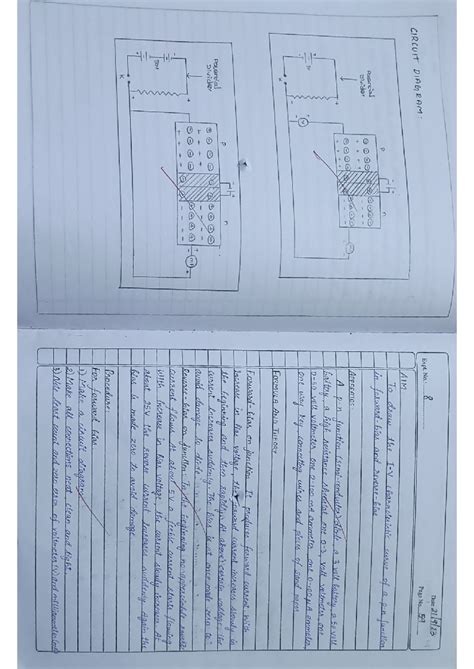 CIRCUIT DIAGRAM:
Potential
Divider
K
V
P
n
Potential
Divider
K
P
n
Date 21/9/23
Expt. No. 8
Page No. 59
AIM
To draw the I-V characteristic curve of a p-n junction
in forward bias and reverse bias
Apparatus
A p-n junction (semi-conductor) diode, a 3 volt battery, a 50 volt
battery, a high resistance rheostat, one 0-3 volt voltmeter, one
0-50 volt voltmeter, one 0-100 mA ammeter, one 0-100 μA ammeter,
one way key, connecting wires and pieces of sand paper
Forward-bias on junction
increase in bias voltage, the forward current increases slowly in
the beginning and then rapidly. At about
current increases suddenly. The bias is at once made zero to
avoid damage to diode
Reverse-bias on junction. In the beginning no appreciable reverse
current flows. At about 5V a feeble current starts flowing
with increase in bias voltage, the current slowly increases. At
about 25V the reverse current increases suddenly. Again the
bias is made zero to avoid damage.
Procedure:
For forward bias
1) Make a circuit diagram
2) Make all connections neat, clean and tight.
3) Note least count and zero error of voltmeter (V) and milliammeter (mA)